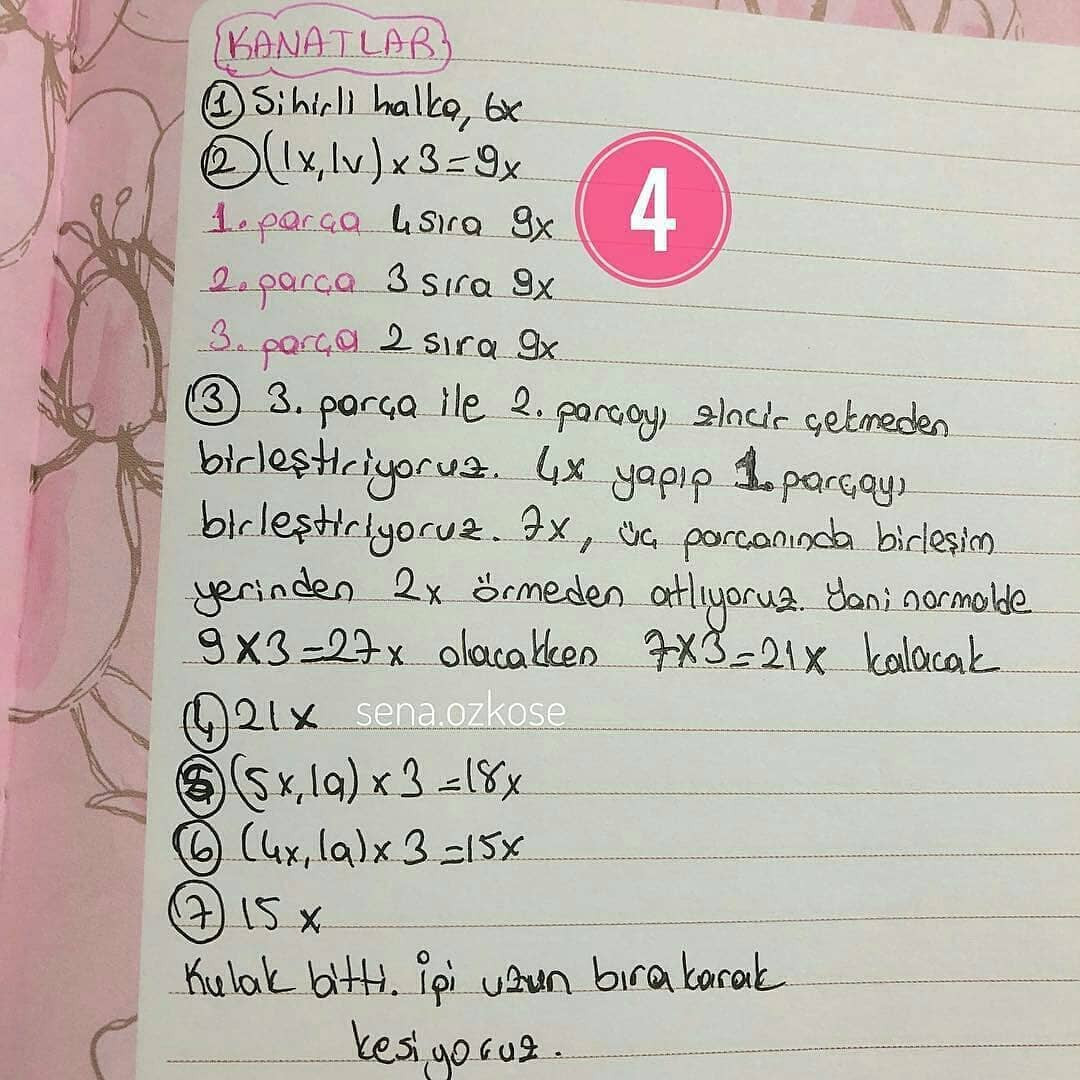 KANATLAR
① Sihirli halka, 6x
② (1x, 1v) x 3 = 9x
4
1. parça 4 sıra 9x
2. parça 3 sıra 9x
3. parça 2 sıra 9x
③ 3. parça ile 2. parçayı zincir çekmeden
birleştiriyoruz. 4x yapıp 1. parçayı
birleştiriyoruz. 7x, üç parçanında birleşim
yerinden 2x örmeden atlıyoruz. Yani normalde
9x3=27x olacakken 7x3=21x kalacak
④ 21x
sena.ozkose
⑤ (5x, 1a) x 3 = 18x
⑥ (4x, 1a) x 3 = 15x
⑦ 15 x
Kulak bitti. İpi uzun bırakarak
kesiyoruz.